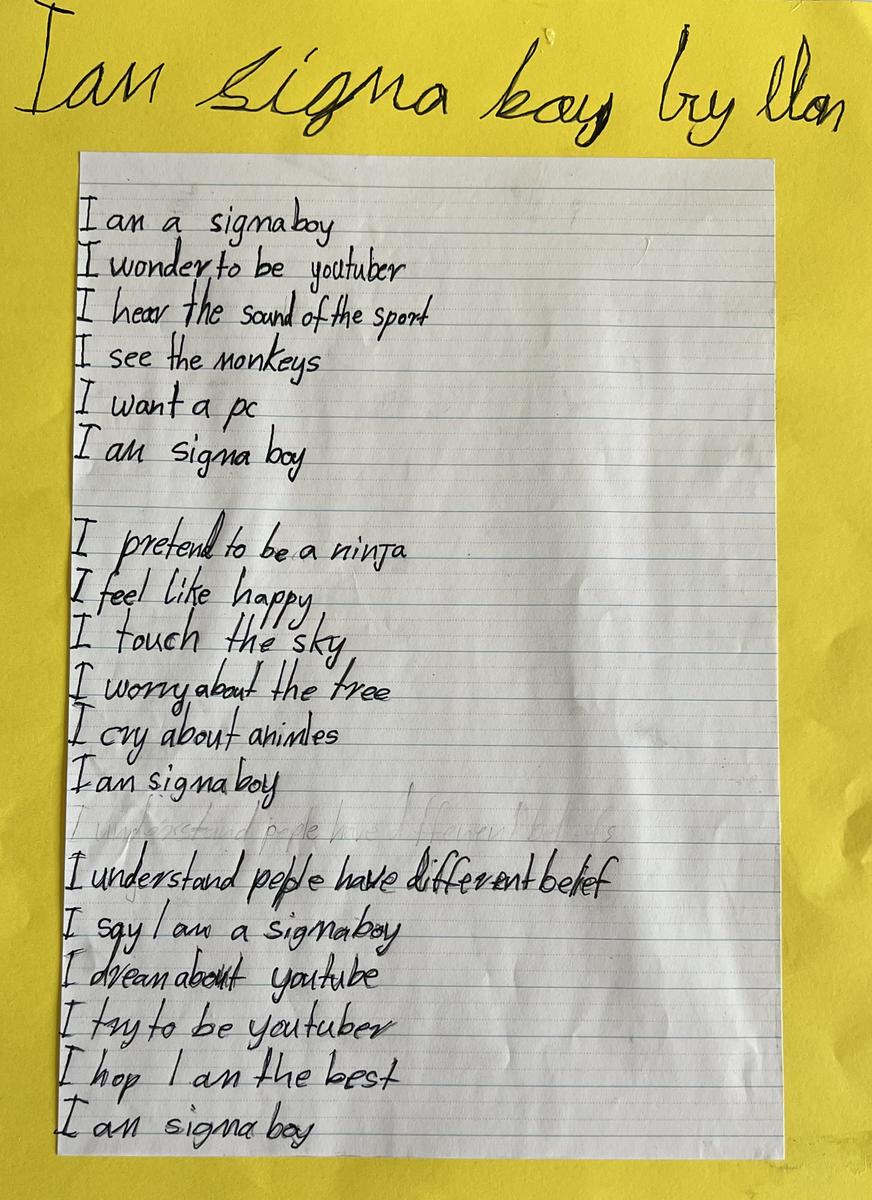 I am sigma boy by Ilan
I am a sigma boy
I wonder to be youtuber
I hear the sound of the sport
I see the monkeys
I want a pc
I am sigma boy
I pretend to be a ninja
I feel like happy
I touch the sky
I worry about the tree
I cry about animles
I am sigma boy
I understand peple have different beliefs
I understand peple have different belief
I say I am a sigma boy
I dream about youtube
I try to be youtuber
I hop I am the best
I am sigma boy